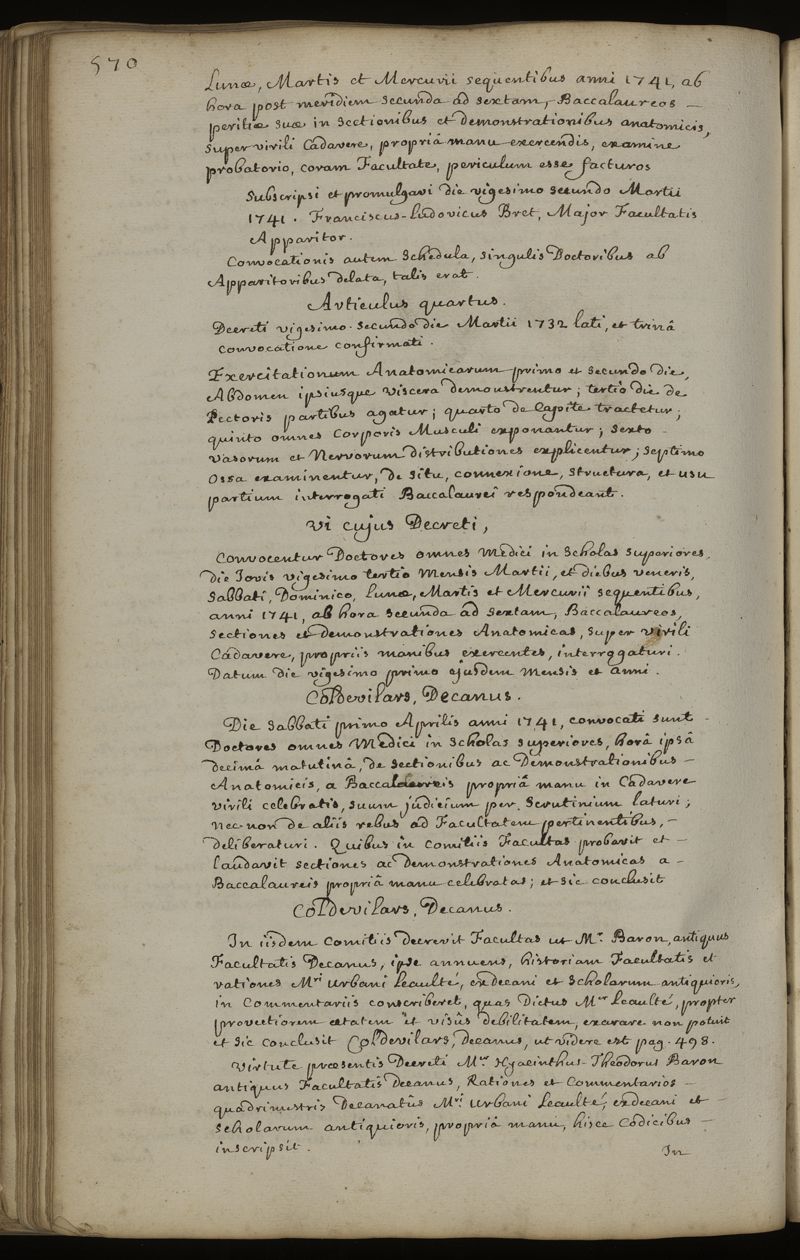 570
Lunæ, Martis et Mercurii sequentibus anni 1741, ab
hora post meridiem secunda ad sextam, Baccalaureos —
peritiæ suæ in sectionibus et demonstrationibus anatomicis,
super virili Cadavere, propriâ manu exercendis, examine
probatorio, coram Facultate, periculum esse facturos
Subscripsi et promulgavi die vigesimo secundo Martii
1741. Franciscus-Ludovicus Bret, Major Facultatis
Apparitor.
Convocationis autem Schedula, singulis Doctoribus ab
Apparitoribus delata, talis erat.
Articulus quartus.
Decreti vigesimo-secundo die Martii 1732 lati, et trinâ
convocatione confirmati.
Exercitationum Anatomicarum primo et secundo die,
Abdomen ipsiusque viscera demonstrentur; tertio die de
Pectoris partibus agatur; quarto de Capite tractetur;
quinto omnes Corporis Musculi exponantur; sexto -
vasorum et Nervorum distributiones explicentur; septimo
Ossa examinentur, de situ, connexione, structura, et usu
partium interrogati Baccalaurei respondeant.
Vi cujus Decreti,
Convocentur Doctores omnes Medici in Scholas superiores,
die Jovis vigesimo tertio mensis Martii, et diebus veneris,
Sabbati, Dominico, Lunæ, Martis et Mercurii sequentibus,
anni 1741, ab hora secunda ad sextam, Baccalaureos,
sectiones et demonstrationes Anatomicas, super virili
Cadavere, propriis manibus exercentes, interrogaturi.
Datum die vigesimo primo ejusdem mensis et anni.
Col-de-vilars, Decanus.
Die Sabbati primo Aprilis anni 1741, convocati sunt -
Doctores omnes Medici in Scholas superiores, horâ ipsâ
decimâ matutinâ, de sectionibus ac Demonstrationibus —
Anatomicis, a Baccalaureis propriâ manu in Cadavere
virili celebratis, suum judicium per Scrutinium laturi;
nec-non de aliis rebus ad Facultatem pertinentibus, —
deliberaturi. Quibus in Comitiis Facultas probavit et —
laudavit sectiones ac demonstrationes Anatomicas a —
Baccalaureis propriâ manu celebratas; et sic conclusit
Col-de-vilars, Decanus.
In iisdem Comitiis decrevit Facultas ut Mr. Baron, antiquus
Facultatis Decanus, ipse annuens, historiam Facultatis et
rationes Mri Urbani Leaulté, exdecani et Scholarum antiquioris,
in Commentariis conscriberet, quas Dictus Mer Leaulté, propter
provectiorem ætatem et visûs debilitatem, exarare non potuit
et sic conclusit Col-de-vilars, Decanus, ut videre est pag. 498.
Virtute præsentis Decreti Mer Hyacinthus-Theodorus Baron
antiquus Facultatis Decanus, Rationes et Commentarios —
quadrimestris Decanatûs Mri Urbani Leaulté, exdecani et —
Scholarum antiquioris, propriâ manu, hisce Codicibus —
inscripsit.
In